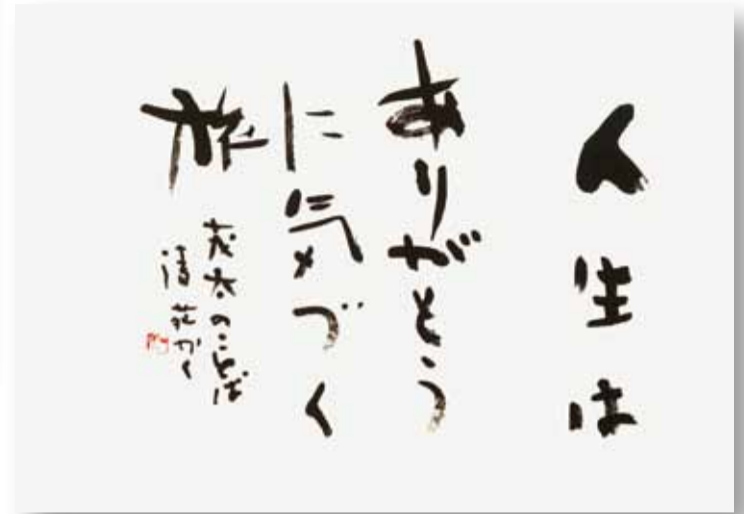 人生は
ありがとう
に気づく
旅
茂太のことば
清花かく